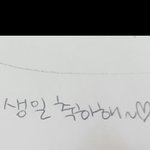 생일 축하해~♡